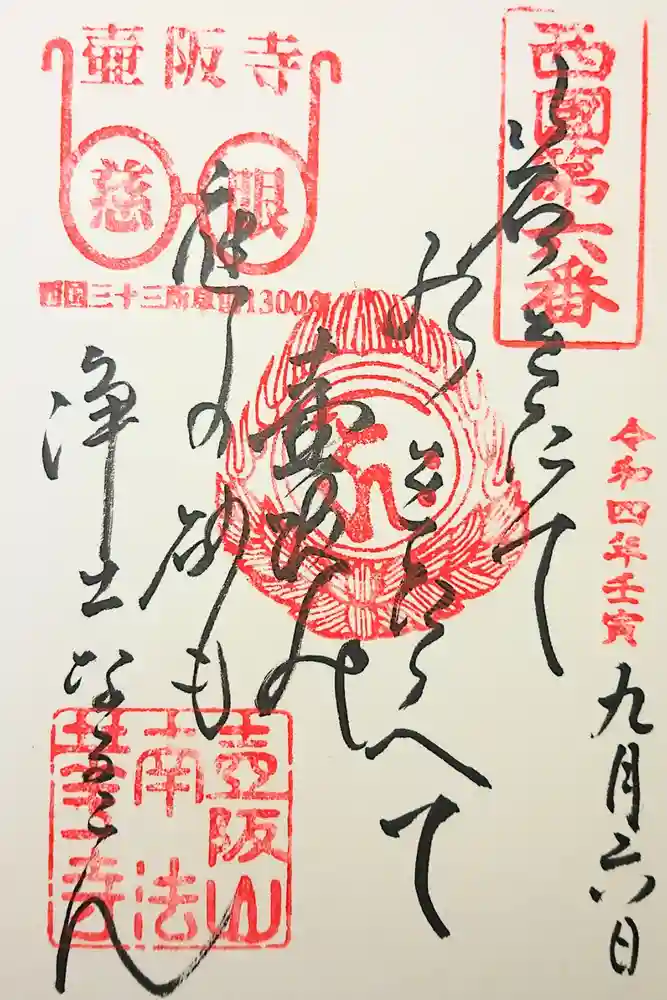 西國第六番
令和四年壬寅
九月六日
岩をたて
水をたゝへて
壷阪の
庭の砂も
浄土なるらん
壷阪寺
慈眼
西国三十三所草創1300年
壷阪山
南法
華寺